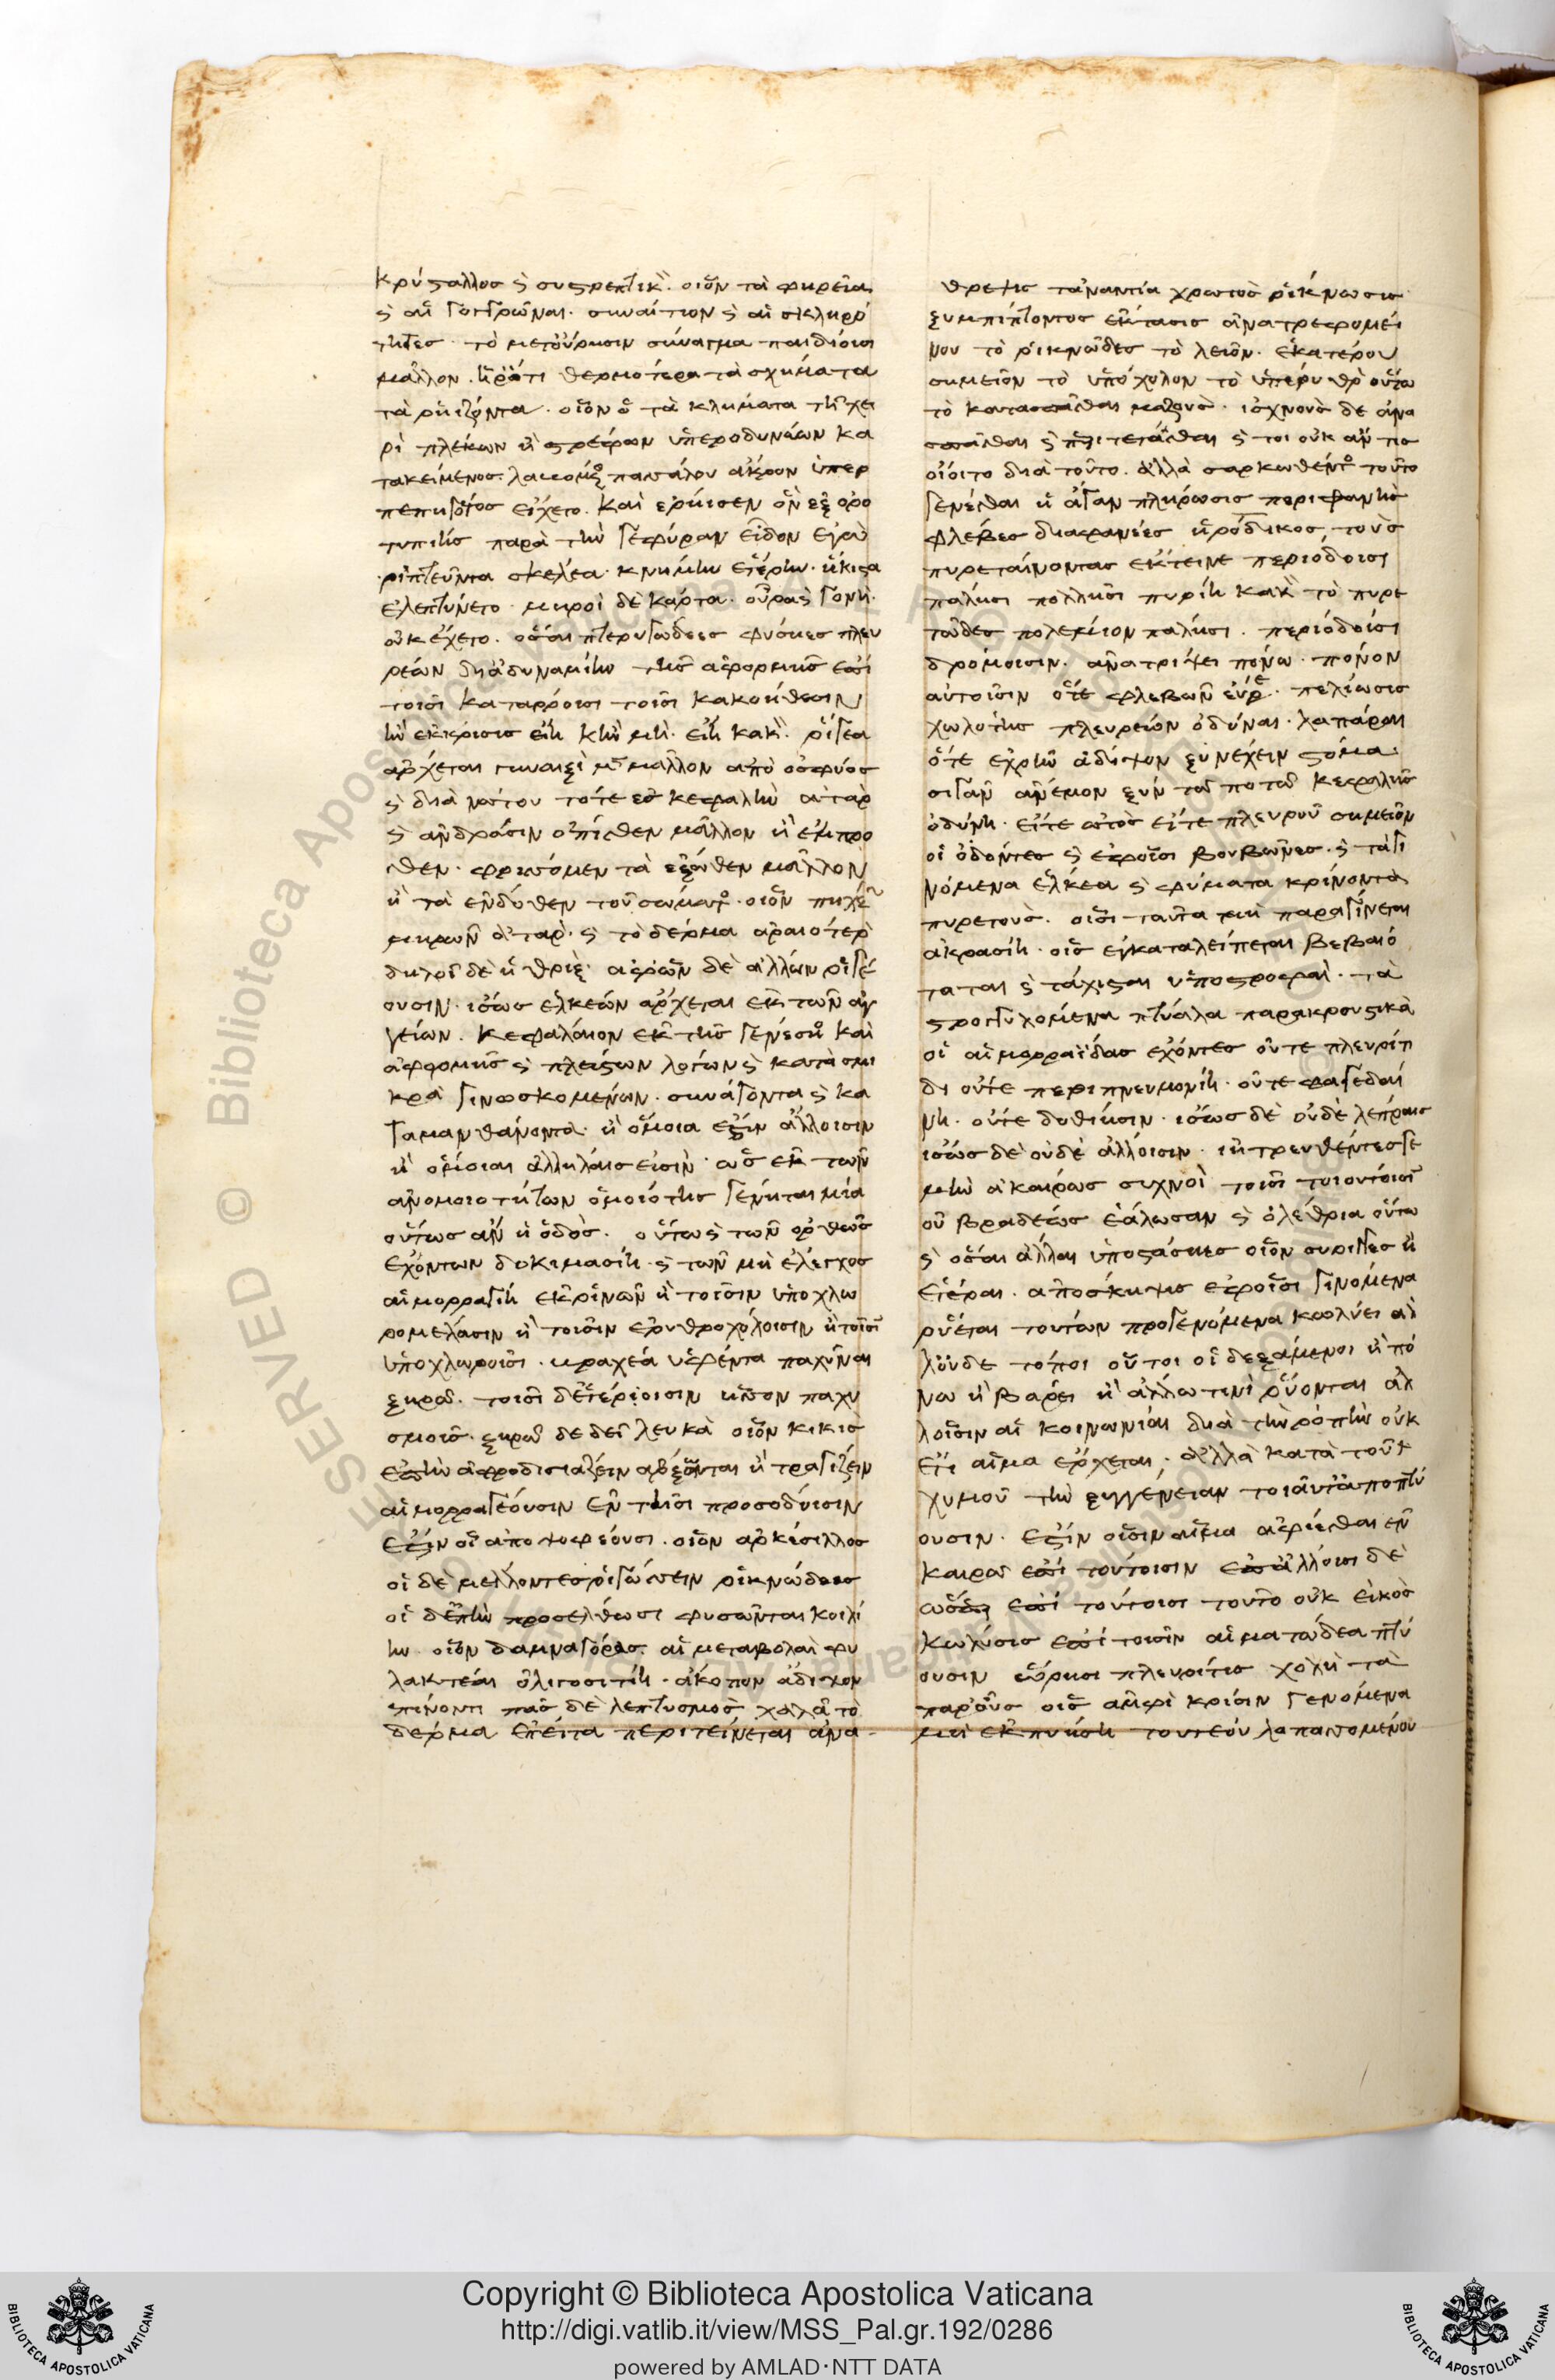 κρύσταλλος καὶ συστρεπτικὸ οἷον τὰ φηρεῖα
καὶ αἱ γογγρῶναι· συναίτιον καὶ αἱ σκληρό
τητες· τὸ μετούρησιν σύναγμα παιδίοισι
μᾶλλον. θερμοτερα τὰ σχήματα
τὰ ῥηίζοντα· οἷον ὃ τὰ κλήματα τῆ χει
ρὶ πλέκων ἢ στρέφων ὑπεροδυνάων κα
τακείμενος. πασσάλου ἄκρον ὑπερ
πεπηγότος εἴχετο. καὶ ἐρήισεν ὃν ἐξ ὀρο
τυπίης παρὰ τὴν γέφυραν εἶδον ἐγὼ
ῥιπτεῦντα σκέλεα· κνήμην ἑτέρην· ἥκιστα
ἐλεπτύνετο· μηροὶ δὲ κάρτα· οὖρα καὶ γονὴ
οὐκ ἔχετο. ὅσαι πτερυγώδεες φύσκες πλευ
ρέων διἀδυναμίην τῆς ἀφορμῆς ἐπὶ
τοῖσι καταρρόοισι τοῖσι κακοήθεσιν
ἢν ἔκκρισις ἔῃ κἢν μὴ ἔῃ κακὸν ῥίγεα
ἄρχεται γυναιξὶ μὲν μᾶλλον ἀπὸ ὀσφύος
καὶ διὰ νώτου τότε ἐς κεφαλὴν ἀτὰρ
καὶ ἀνδράσιν ὄπισθεν μᾶλλον ἢ ἔμπρο
σθεν· φρίσσομεν τὰ ἔξωθεν μᾶλλον
ἢ τὰ ἔνδοθεν τοῦ σώματος· οἷον πήχεων
μηρῶν ἀτὰρ· καὶ τὸ δέρμα ἀραιότερον
δηλοῖ δὲ ἡ θρίξ· ἀφ ὧν δὲ ἄλλων ῥιγέ
ουσιν· ἴσως ἑλκέων ἄρχεται ἐκ τῶν ἀγ
γείων. κεφάλαιον ἐκ τῆς γενέσιος καὶ
ἀφορμῆς καὶ πλείστων λόγων καὶ κατὰ σμι
κρὰ γινωσκομένων· συνάγοντα καὶ κα
ταμανθάνοντα· ἢ ὅμοιά ἐστιν ἀλλοισιν
ἢ ἀλλήλαις εἰσὶν· ὡς ἐκ τῶν
ἀνομοιοτήτων ὁμοιότης γένηται μία
οὕτως ἂν ἡ ὁδὸς. οὕτω καὶ τῶν ὀρθῶς
ἐχόντων δοκιμασίη· καὶ τῶν μὴ ἔλεγχος
αἱμορραγίη ἐκ ῥινῶν ἢ τοῖσιν ὑποχλω
ρομέλασιν ἢ τοῖσιν ἐρυθροχλόοισιν ἢ τοῖσι
ὑποχλώροισι· ὑγρέντα παχῦναι
ξηρῶ. τοῖσι δἑτέροισιν ἧσσον παχυ
σμοῖς· ξηρῶ δε δεῖ λευκὰ οἷον κικὶς
ἐστὶν ἀφροδισιάζειν αὔξονται ἢ τραγίζειν
αἱμορραγέουσιν ἐν τῆσι προσοδύισιν
ἔστιν οἳ ἀποψοφέουσι· οἷον ἀρκεσίλλος
οἱ δὲ μέλλοντες ῥιγώσειν ῥικνώδεες
οἱ δἐπὴν προσέλθωσι φυσῶνται κοιλί
ην· οἷον δαμναγόρας. αἱ μεταβολαὶ φυ
λακτέαι ὀλιγοσιτίη· ἄκοπον ἄδιψον
πίνοντι πᾶς δὲ λεπτυσμὸς χαλᾶ τὸ
δέρμα ἔπειτα περιτείνεται ἀνα
θρεψις τἀναντία χρωτὸς ῥίκνωσις
ξυμπίπτοντος ἔκτασις ἀνατρεφομέ
νου τὸ ῥικνῶδες τὸ λεῖον· ἑκατέρου
σημεῖον τὸ ὑπόχολον τὸ ὑπέρυθρον οὕτω
τὸ κατασπᾶσθαι μαζοὺς· ἰσχνοὺς δε ἀνα
σπᾶσθαι καὶ περιτετάσθαι καὶ τοι οὐκ ἄν τις
οἴοιτο διὰ τοῦτο· ἀλλὰ σαρκωθέντος τοῦτο
γενέσθαι ἡ ἄγαν πλήρωσις περιφανὴς
φλέβες διαφανέες ἡρόδικος, τοὺς
πυρεταίνοντας ἔκτεινε περιόδοισι
πάλῃσι πολλῇσι πυρίη κακὸν τὸ πυρε
τῶδες πολέμιον πάλῃσι· περιόδοισι
δρόμοισιν· ἀνατρίψει πόνω· πόνον
αὐτοῖσιν ὅτε φλεβῶν· πελίωσις
χωλότης πλευρέων ὀδύναι· λαπάραι
ὅτε ἐχρῆν ἄδιψον ξυνέχειν στόμα·
σιγᾶν ἄνεμον ξὺν τῶ ποτῶ κεφαλῆς
ὀδύνη· εἴτε ὠτὸς εἴτε πλευροῦ σημεῖον
οἱ ὀδόντες καὶ ἐφοῖσι βουβῶνες· καὶ τὰ γι
νόμενα ἕλκεα καὶ φύματα κρίνοντα
πυρετοὺς. οἷσι ταῦτα μὴ παραγίνεται
ἀκρασίη· οἷς ἐγκαταλείπεται βεβαιό
ταται καὶ τάχισται ὑποστροφαὶ· τὰ
στρογγυλούμενα πτύαλα παρακρουστικὰ
οἱ αἱμορροΐδας ἔχοντες οὔτε πλευρίτι
δι οὔτε περιπνευμονίη· οὔτε φαγεδαί
νη· οὔτε δοθιῆσιν· ἴσως δὲ οὐδὲ λέπραις
ἴσως δὲ οὐδὲ ἄλλοισιν· ἰητρευθέντες γε
μὴν ἀκαίρως συχνοὶ τοῖσι τοιουτοισι
οὐ βραδέως ἑάλωσαν καὶ ὀλέθρια οὕτω
καὶ ὅσαι ἄλλαι ὑποστάσιες οἷον συριγγες ἢ
ἕτεραι· ἀποσκηψις ἐφοῖσι γινόμενα
ῥύεται τουτων προγενόμενα κωλύει αλ
λου δε τόποι οὗτοι οἱ δεξάμενοι ἢ πό
νω ἢ βάρει ἢ ἄλλω τινὶ ῥύονται ἀλ
λοῖσιν αἱ κοινωνίαι διὰ τὴν ῥοπὴν οὐκ
ἔτι αἷμα ἔρχεται· ἀλλὰ κατὰ τοῦ
χυμοῦ τὴν ξυγγένειαν τοιαῦτα ἀποπτύ
ουσιν· ἔστιν οἷσιν αἷμα ἀφίεσθαι ἐν
καιρῶ ἐπὶ τούτοισιν ἐπἄλλοισι δὲ
ὥσπερ ἐπὶ τούτοισι τοῦτο οὐκ εἰκὸς
κώλυσις ἐπὶ τοῖσιν αἱματώδεα πτύ
ουσιν ὥρῃσι πλευρίτις χολὴ τὰ
παροὖς οἷς ἀμφὶ κρίσιν γενόμενα
μὴ ἐκπυήσῃ τουτέου λαπασσομένου
Copyright © Biblioteca Apostolica Vaticana
http://digi.vatlib.it/view/MSS_Pal.gr.192/0286
powered by AMLAD·NTT DATA